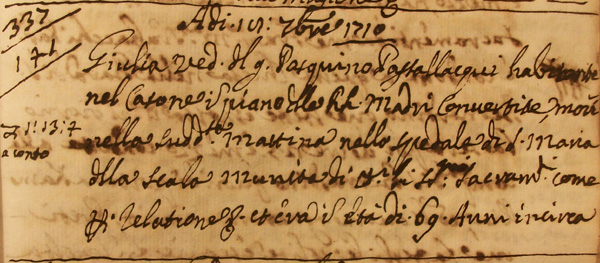 337
Adi. 15: 7bre 1710
171
Giulia Ved. dl q. Pasquino Passallacqui habitante
nel Casone i piano dlle RR. Madri Convertite, morì
nella sudd. Mattina nello spedale di S. Maria
1: 13: 7
a conto
dlla scala munita di SSmi Sacramti come
p. Relatione &. et era i età di 69. Anni incirca